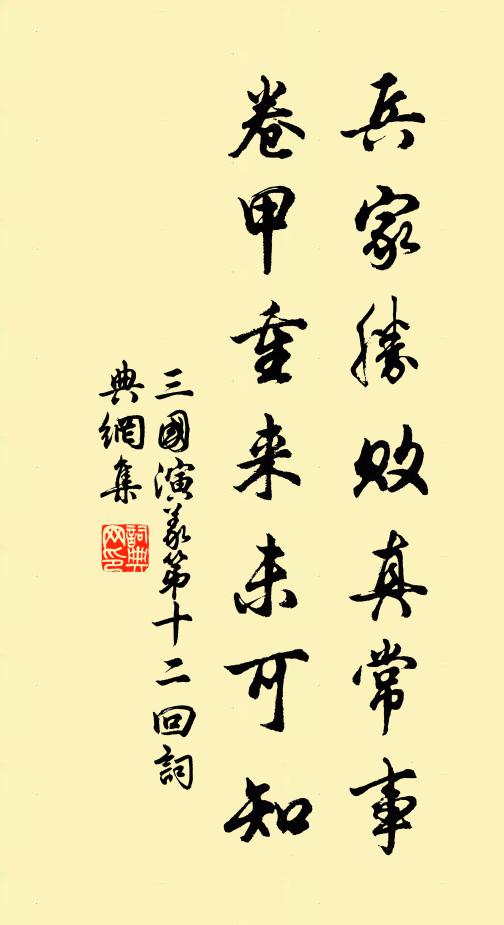 兵家勝敗真常事
卷甲重来未可知
三國演義第十二回詞
典網集
詞典
网印